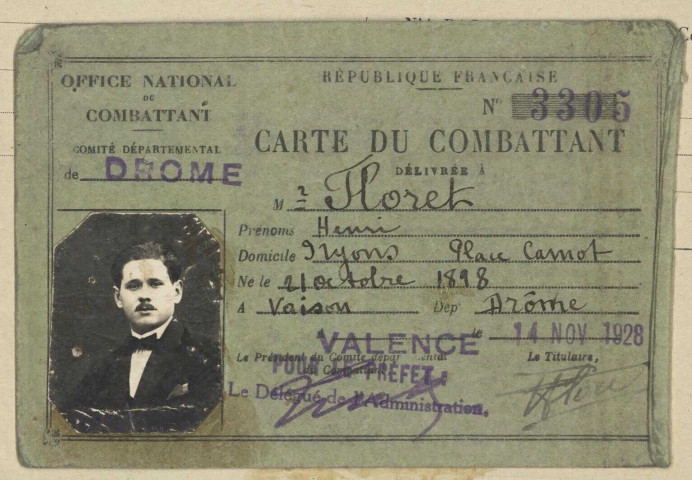 OFFICE NATIONAL
DU
COMBATTANT
COMITÉ DÉPARTEMENTAL
de DROME
RÉPUBLIQUE FRANÇAISE
N° 3305
CARTE DU COMBATTANT
DÉLIVRÉE A
Mr Floret
Prénoms Henri
Domicile Nyons Place Carnot
Né le 21 octobre 1898
A Vaison Dép Drôme
VALENCE le 14 NOV 1928
Le Président du Comité départemental
du Combattant
Le Titulaire,
POUR LE PRÉFET:
Le Délégué de l'Administration,